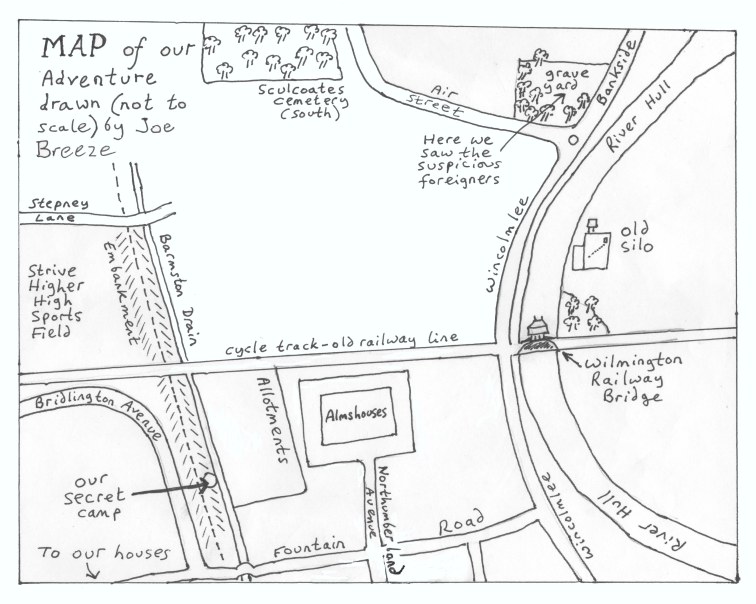 MAP of our
Adventure
drawn (not to
scale) by Joe
Breeze
Sculcoates
cemetery
(south)
Air
street
grave
yard
Bankside
River Hull
Here we
saw the
suspicious
foreigners
Stepney
Lane
Embankment
Barmston Drain
Wincolmlee
old
silo
Strive
Higher
High
Sports
Field
cycle track-old railway line
Wilmington
Railway
Bridge
Bridlington Avenue
Allotments
Almshouses
our
secret
camp
Northumberland
Avenue
Wincolmlee
River Hull
To our houses
Fountain
Road